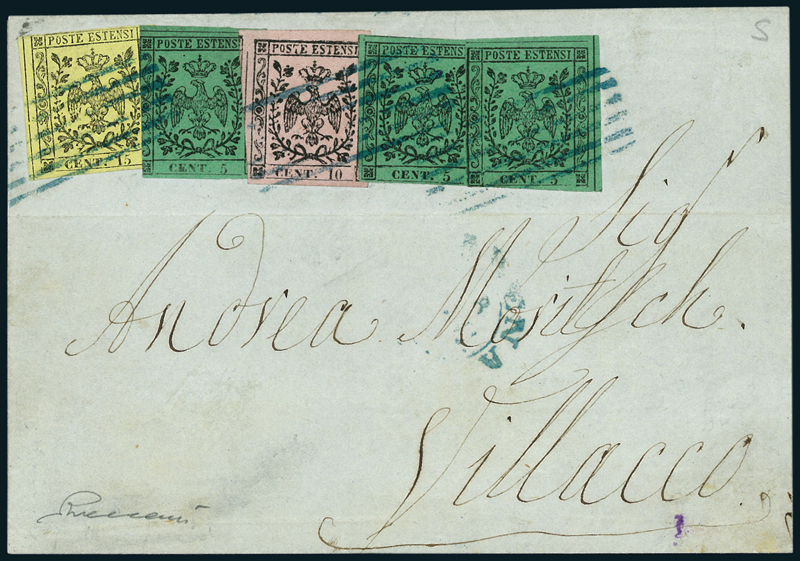 POSTE ESTENSI
CENT. 15
POSTE ESTENSI
CENT. 5
POSTE ESTENSI
CENT. 10
POSTE ESTENSI
CENT. 5
POSTE ESTENSI
CENT. 5.
Sigr
Andrea Moritsch.
Villacco